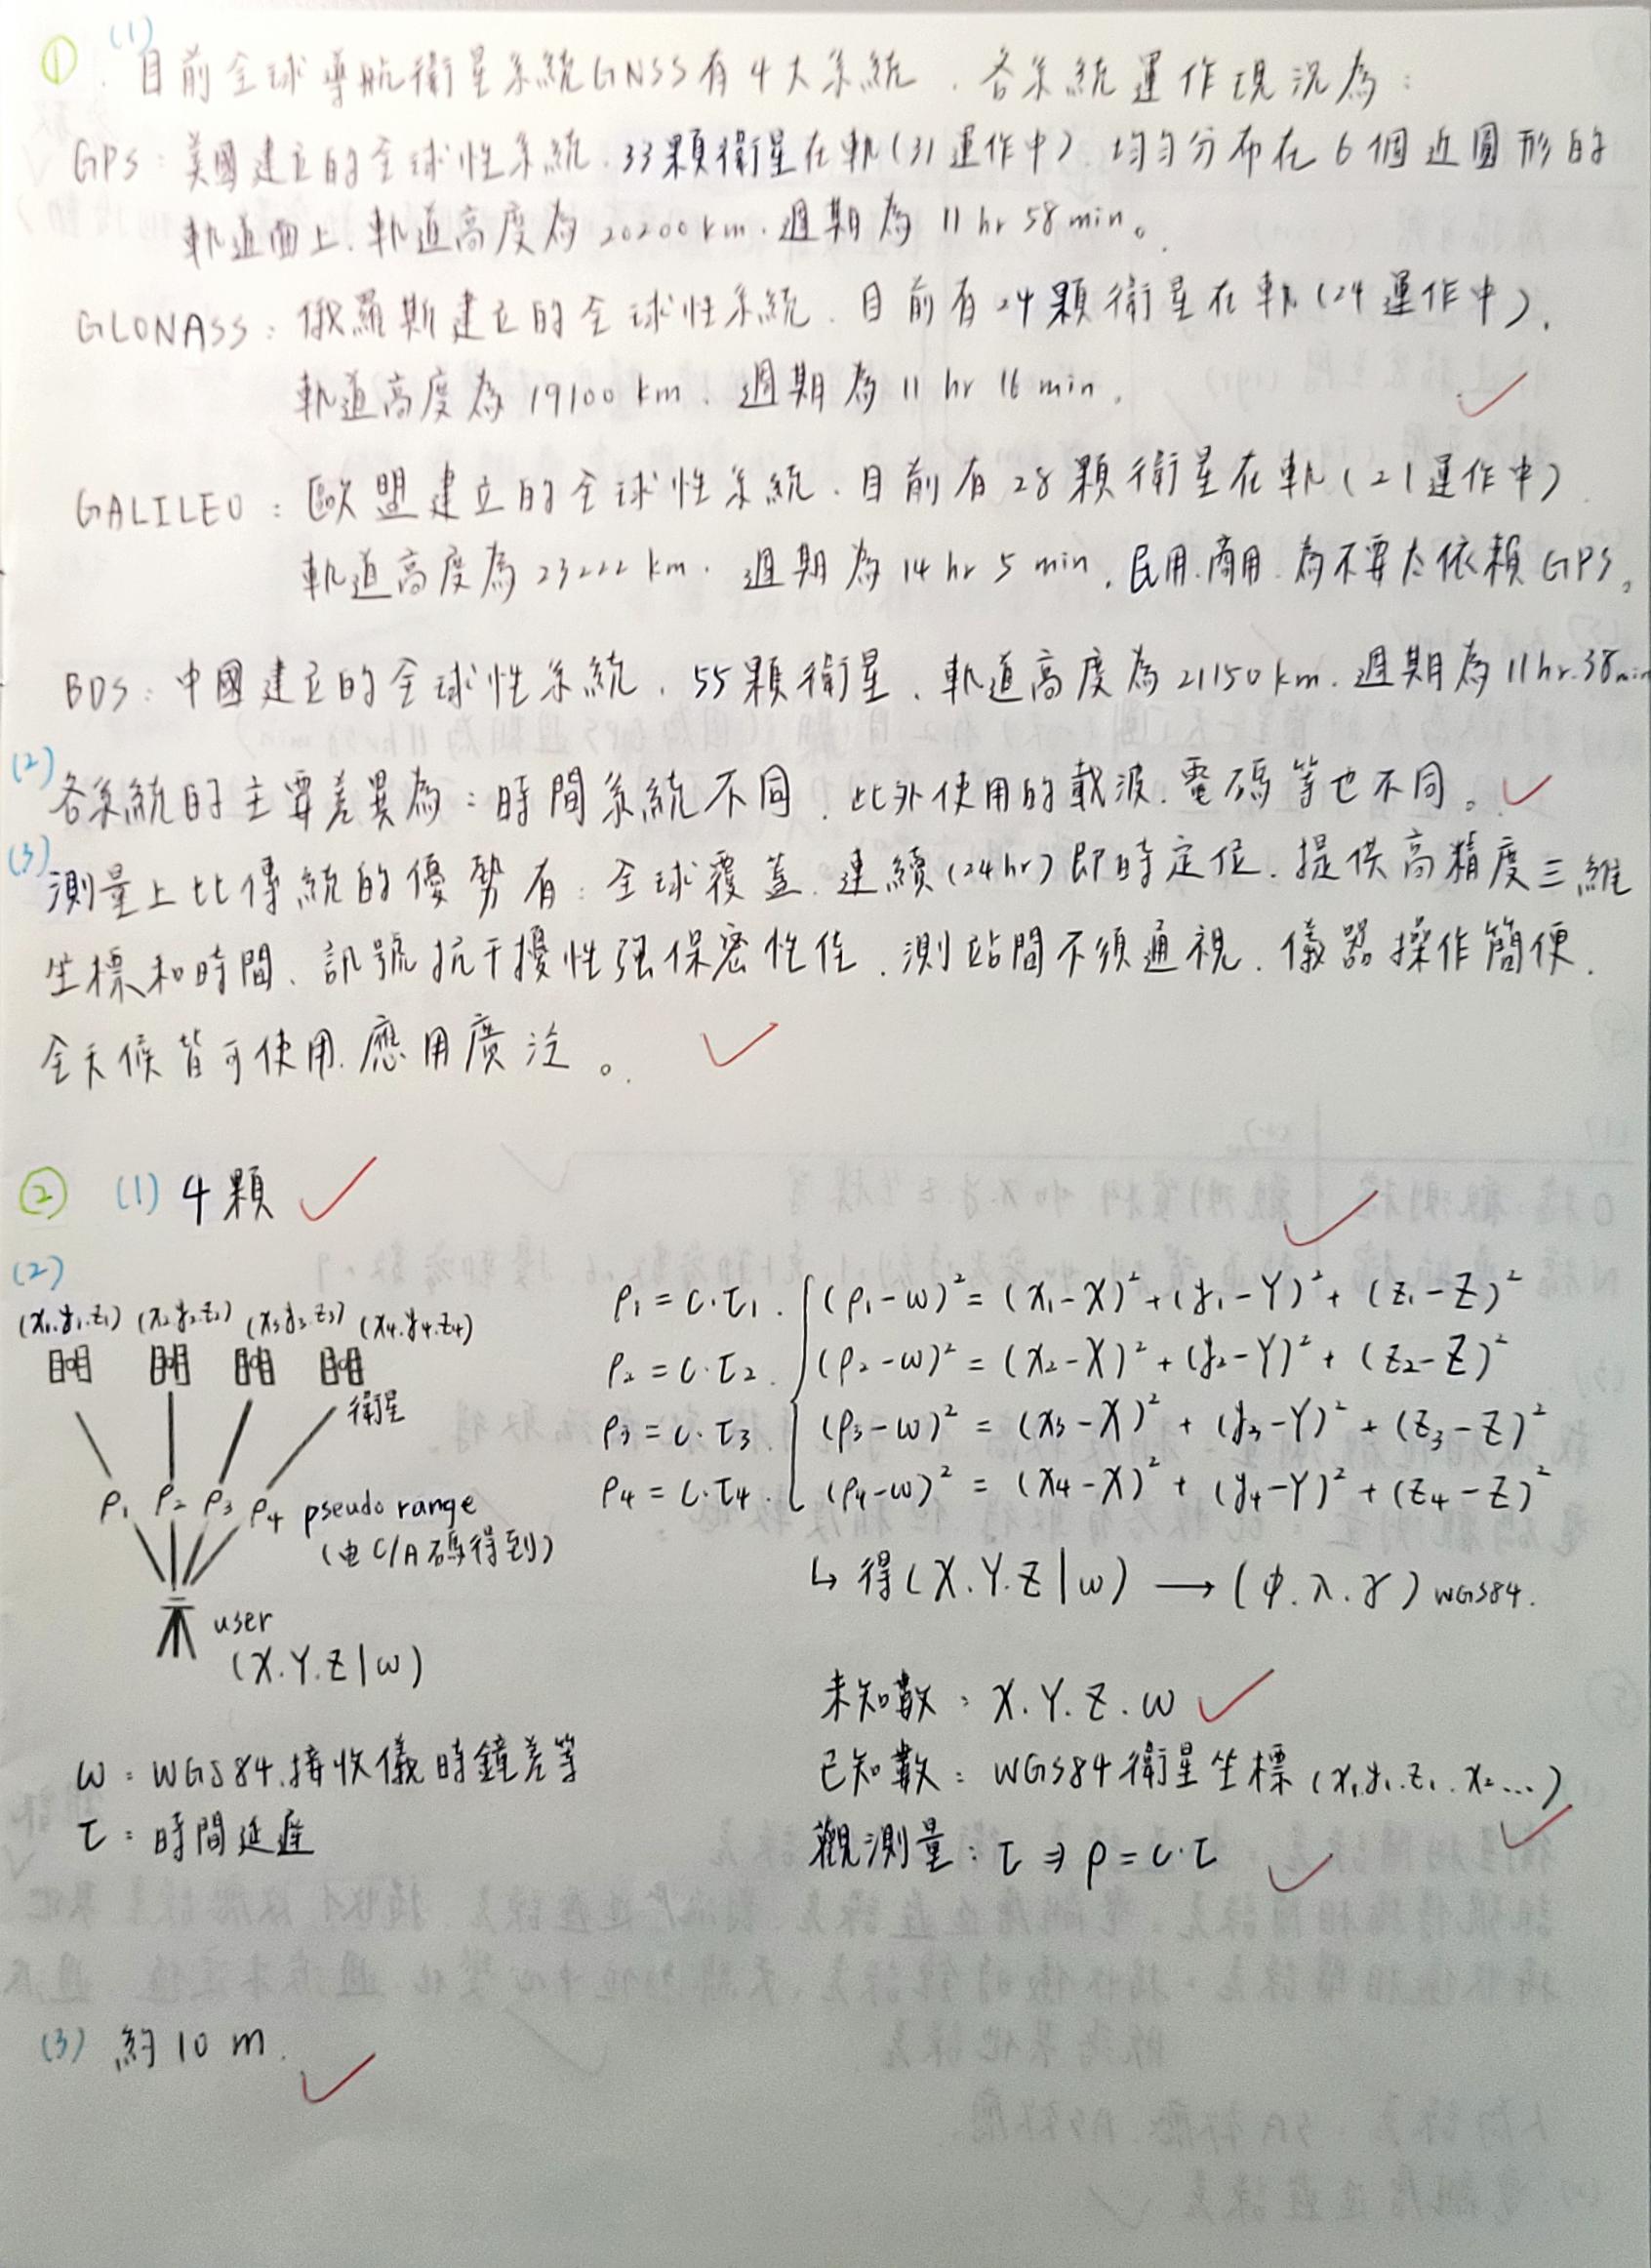 ① (1) 目前全球導航衛星系統GNSS有4大系統，各系統運作現況為：
GPS：美國建立的全球性系統，33顆衛星在軌(31運作中)，均勻分布在6個近圓形的
軌道面上，軌道高度為20200km，週期為11hr58min。
GLONASS：俄羅斯建立的全球性系統，目前有24顆衛星在軌(24運作中)，
軌道高度為19100km，週期為11hr16min，
GALILEO：歐盟建立的全球性系統，目前有28顆衛星在軌(21運作中)
軌道高度為23222km，週期為14hr5min，民用、商用，為不要太依賴GPS。
BDS：中國建立的全球性系統，55顆衛星，軌道高度為21150km，週期為11hr38min
(2) 各系統的主要差異為：時間系統不同，此外使用的載波、電碼等也不同。
(3) 測量上比傳統的優勢有：全球覆蓋、連續(24hr)即時定位、提供高精度三維
坐標和時間、訊號抗干擾性强保密性佳、測站間不須通視、儀器操作簡便、
全天候皆可使用、應用廣泛。
② (1) 4顆
(2)
(x₁.y₁.z₁) (x₂.y₂.z₂) (x₃.y₃.z₃) (x₄.y₄.z₄)
衛星
ρ₁ ρ₂ ρ₃ ρ₄ pseudo range
(由C/A碼得到)
user
(X.Y.Z|ω)
ω：WGS84,接收儀時鐘差等
τ：時間延遲
ρ₁=c·τ₁. (ρ₁-ω)²=(x₁-X)²+(y₁-Y)²+(z₁-Z)²
ρ₂=c·τ₂. (ρ₂-ω)²=(x₂-X)²+(y₂-Y)²+(z₂-Z)²
ρ₃=c·τ₃. (ρ₃-ω)²=(x₃-X)²+(y₃-Y)²+(z₃-Z)²
ρ₄=c·τ₄. (ρ₄-ω)²=(x₄-X)²+(y₄-Y)²+(z₄-Z)²
↳ 得(X.Y.Z|ω) → (φ.λ.γ) WGS84.
未知數：X.Y.Z.ω
已知數：WGS84衛星坐標(x₁.y₁.z₁.x₂...)
觀測量：τ⇒ρ=c·τ
(3) 約10m.